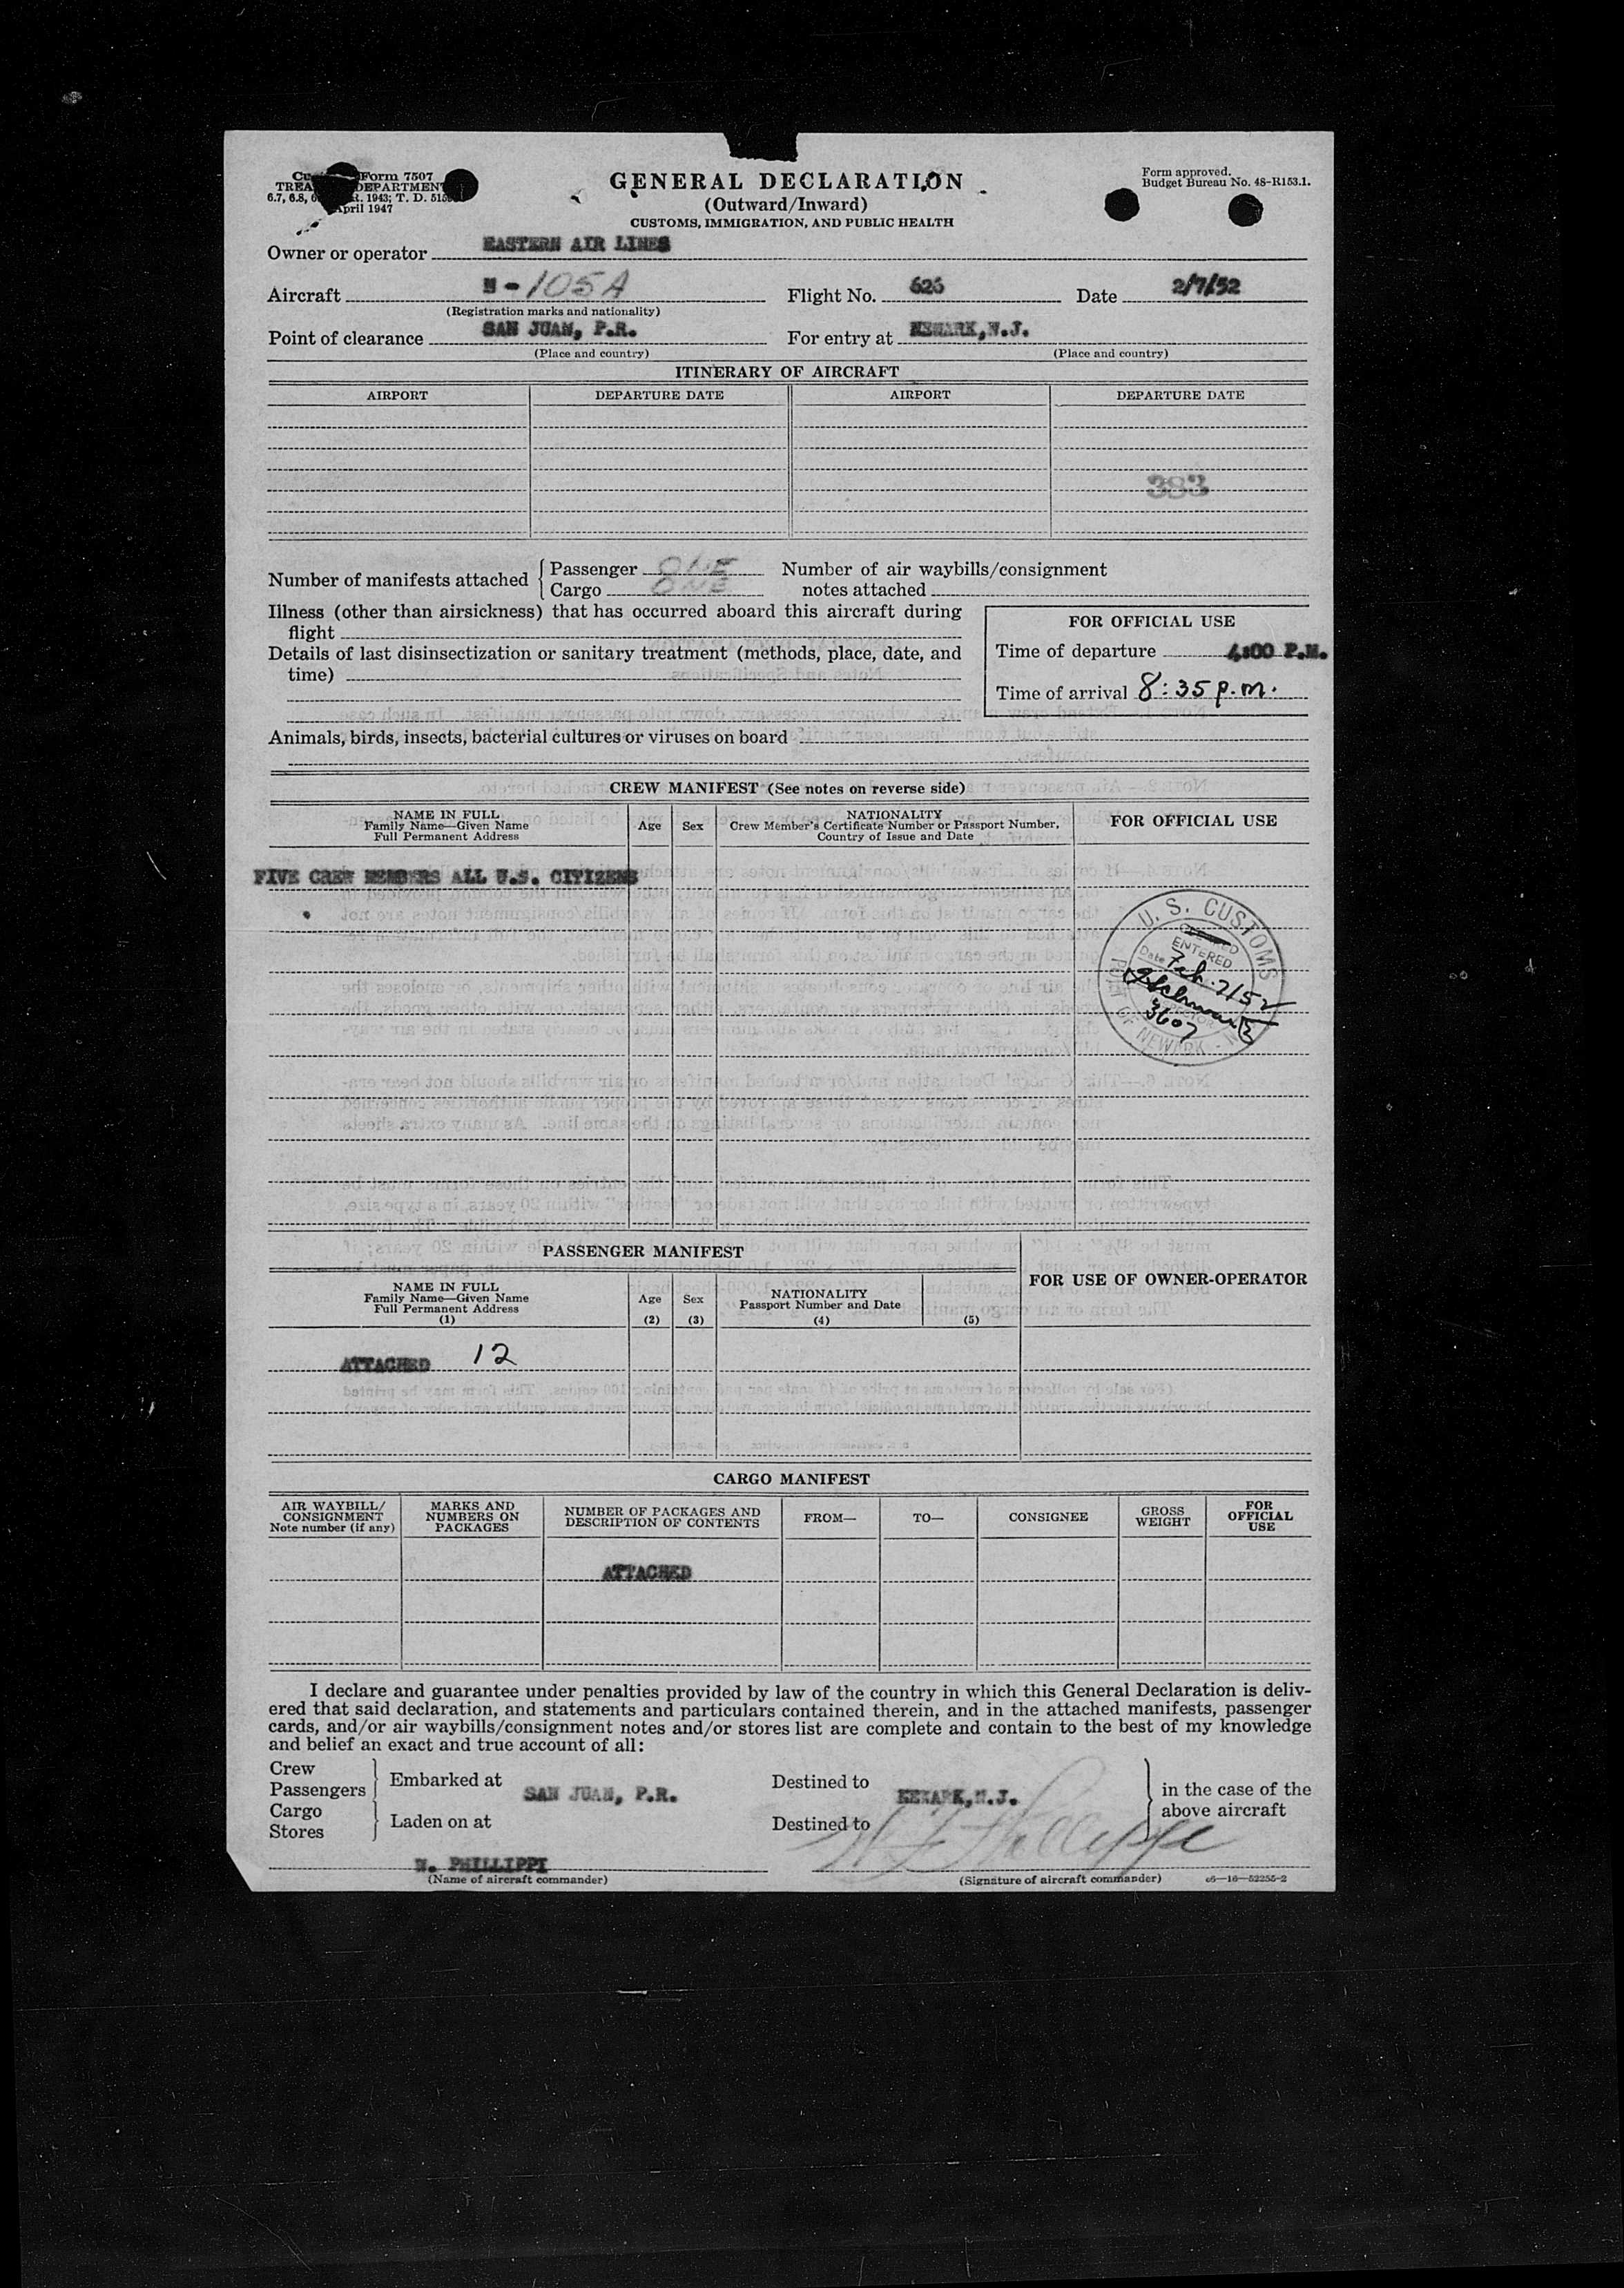 Form 7507
TREA DEPARTMENT
6.7, 6.8, R. 1943; T. D.
April 1947
GENERAL DECLARATION
(Outward/Inward)
CUSTOMS, IMMIGRATION, AND PUBLIC HEALTH
Form approved.
Budget Bureau No. 48-R153.1.
Owner or operator EASTERN AIR LINES
Aircraft N - 105A Flight No. 626 Date 2/7/52
(Registration marks and nationality)
Point of clearance SAN JUAN, P.R. For entry at NEWARK, N.J.
(Place and country) (Place and country)
ITINERARY OF AIRCRAFT
AIRPORT DEPARTURE DATE AIRPORT DEPARTURE DATE
383
Number of manifests attached { Passenger ONE Number of air waybills/consignment
Cargo ONE notes attached
Illness (other than airsickness) that has occurred aboard this aircraft during
flight
Details of last disinsectization or sanitary treatment (methods, place, date, and
time)
FOR OFFICIAL USE
Time of departure 4:00 P.M.
Time of arrival 8:35 p.m.
Animals, birds, insects, bacterial cultures or viruses on board
CREW MANIFEST (See notes on reverse side)
NAME IN FULL
Family Name—Given Name
Full Permanent Address
Age Sex
NATIONALITY
Crew Member's Certificate Number or Passport Number,
Country of Issue and Date
FOR OFFICIAL USE
FIVE CREW MEMBERS ALL U.S. CITIZENS
U. S. CUSTOMS
ENTERED
Date Feb. 7/52
3607
PORT OF NEWARK - N
PASSENGER MANIFEST
NAME IN FULL
Family Name—Given Name
Full Permanent Address
(1)
Age
(2)
Sex
(3)
NATIONALITY
Passport Number and Date
(4) (5)
FOR USE OF OWNER-OPERATOR
ATTACHED 12
CARGO MANIFEST
AIR WAYBILL/
CONSIGNMENT
Note number (if any)
MARKS AND
NUMBERS ON
PACKAGES
NUMBER OF PACKAGES AND
DESCRIPTION OF CONTENTS
FROM— TO— CONSIGNEE
GROSS
WEIGHT
FOR
OFFICIAL
USE
ATTACHED
I declare and guarantee under penalties provided by law of the country in which this General Declaration is deliv-
ered that said declaration, and statements and particulars contained therein, and in the attached manifests, passenger
cards, and/or air waybills/consignment notes and/or stores list are complete and contain to the best of my knowledge
and belief an exact and true account of all:
Crew
Passengers } Embarked at SAN JUAN, P.R. Destined to NEWARK, N.J. } in the case of the
Cargo above aircraft
Stores } Laden on at Destined to
W. PHILLIPPI
(Name of aircraft commander) (Signature of aircraft commander) c6—16—52255-2